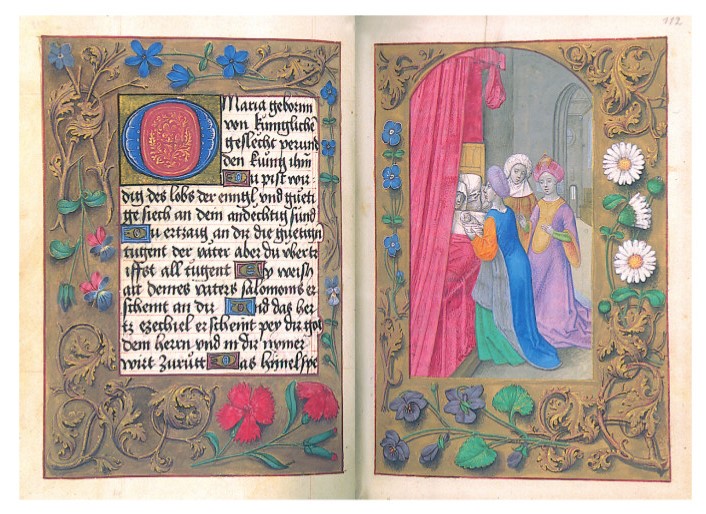 O
Maria geborin
von kunglichē
geslecht
den kung ihm
Du pist wir
dig des lobs der enngl vnd gueti
ge siech an dem andechtig sund
Du ertzaig an dir die guetign
tugent der vater aber du vbertr
iffst all tugent Dy weish
ait dennes vaters salomonis er
scheint an dir Vnd das her
tz Ezechiel erscheint pey dir got
dem herrn vnd in dir nymer
wirt zurutt Das himelspe
112